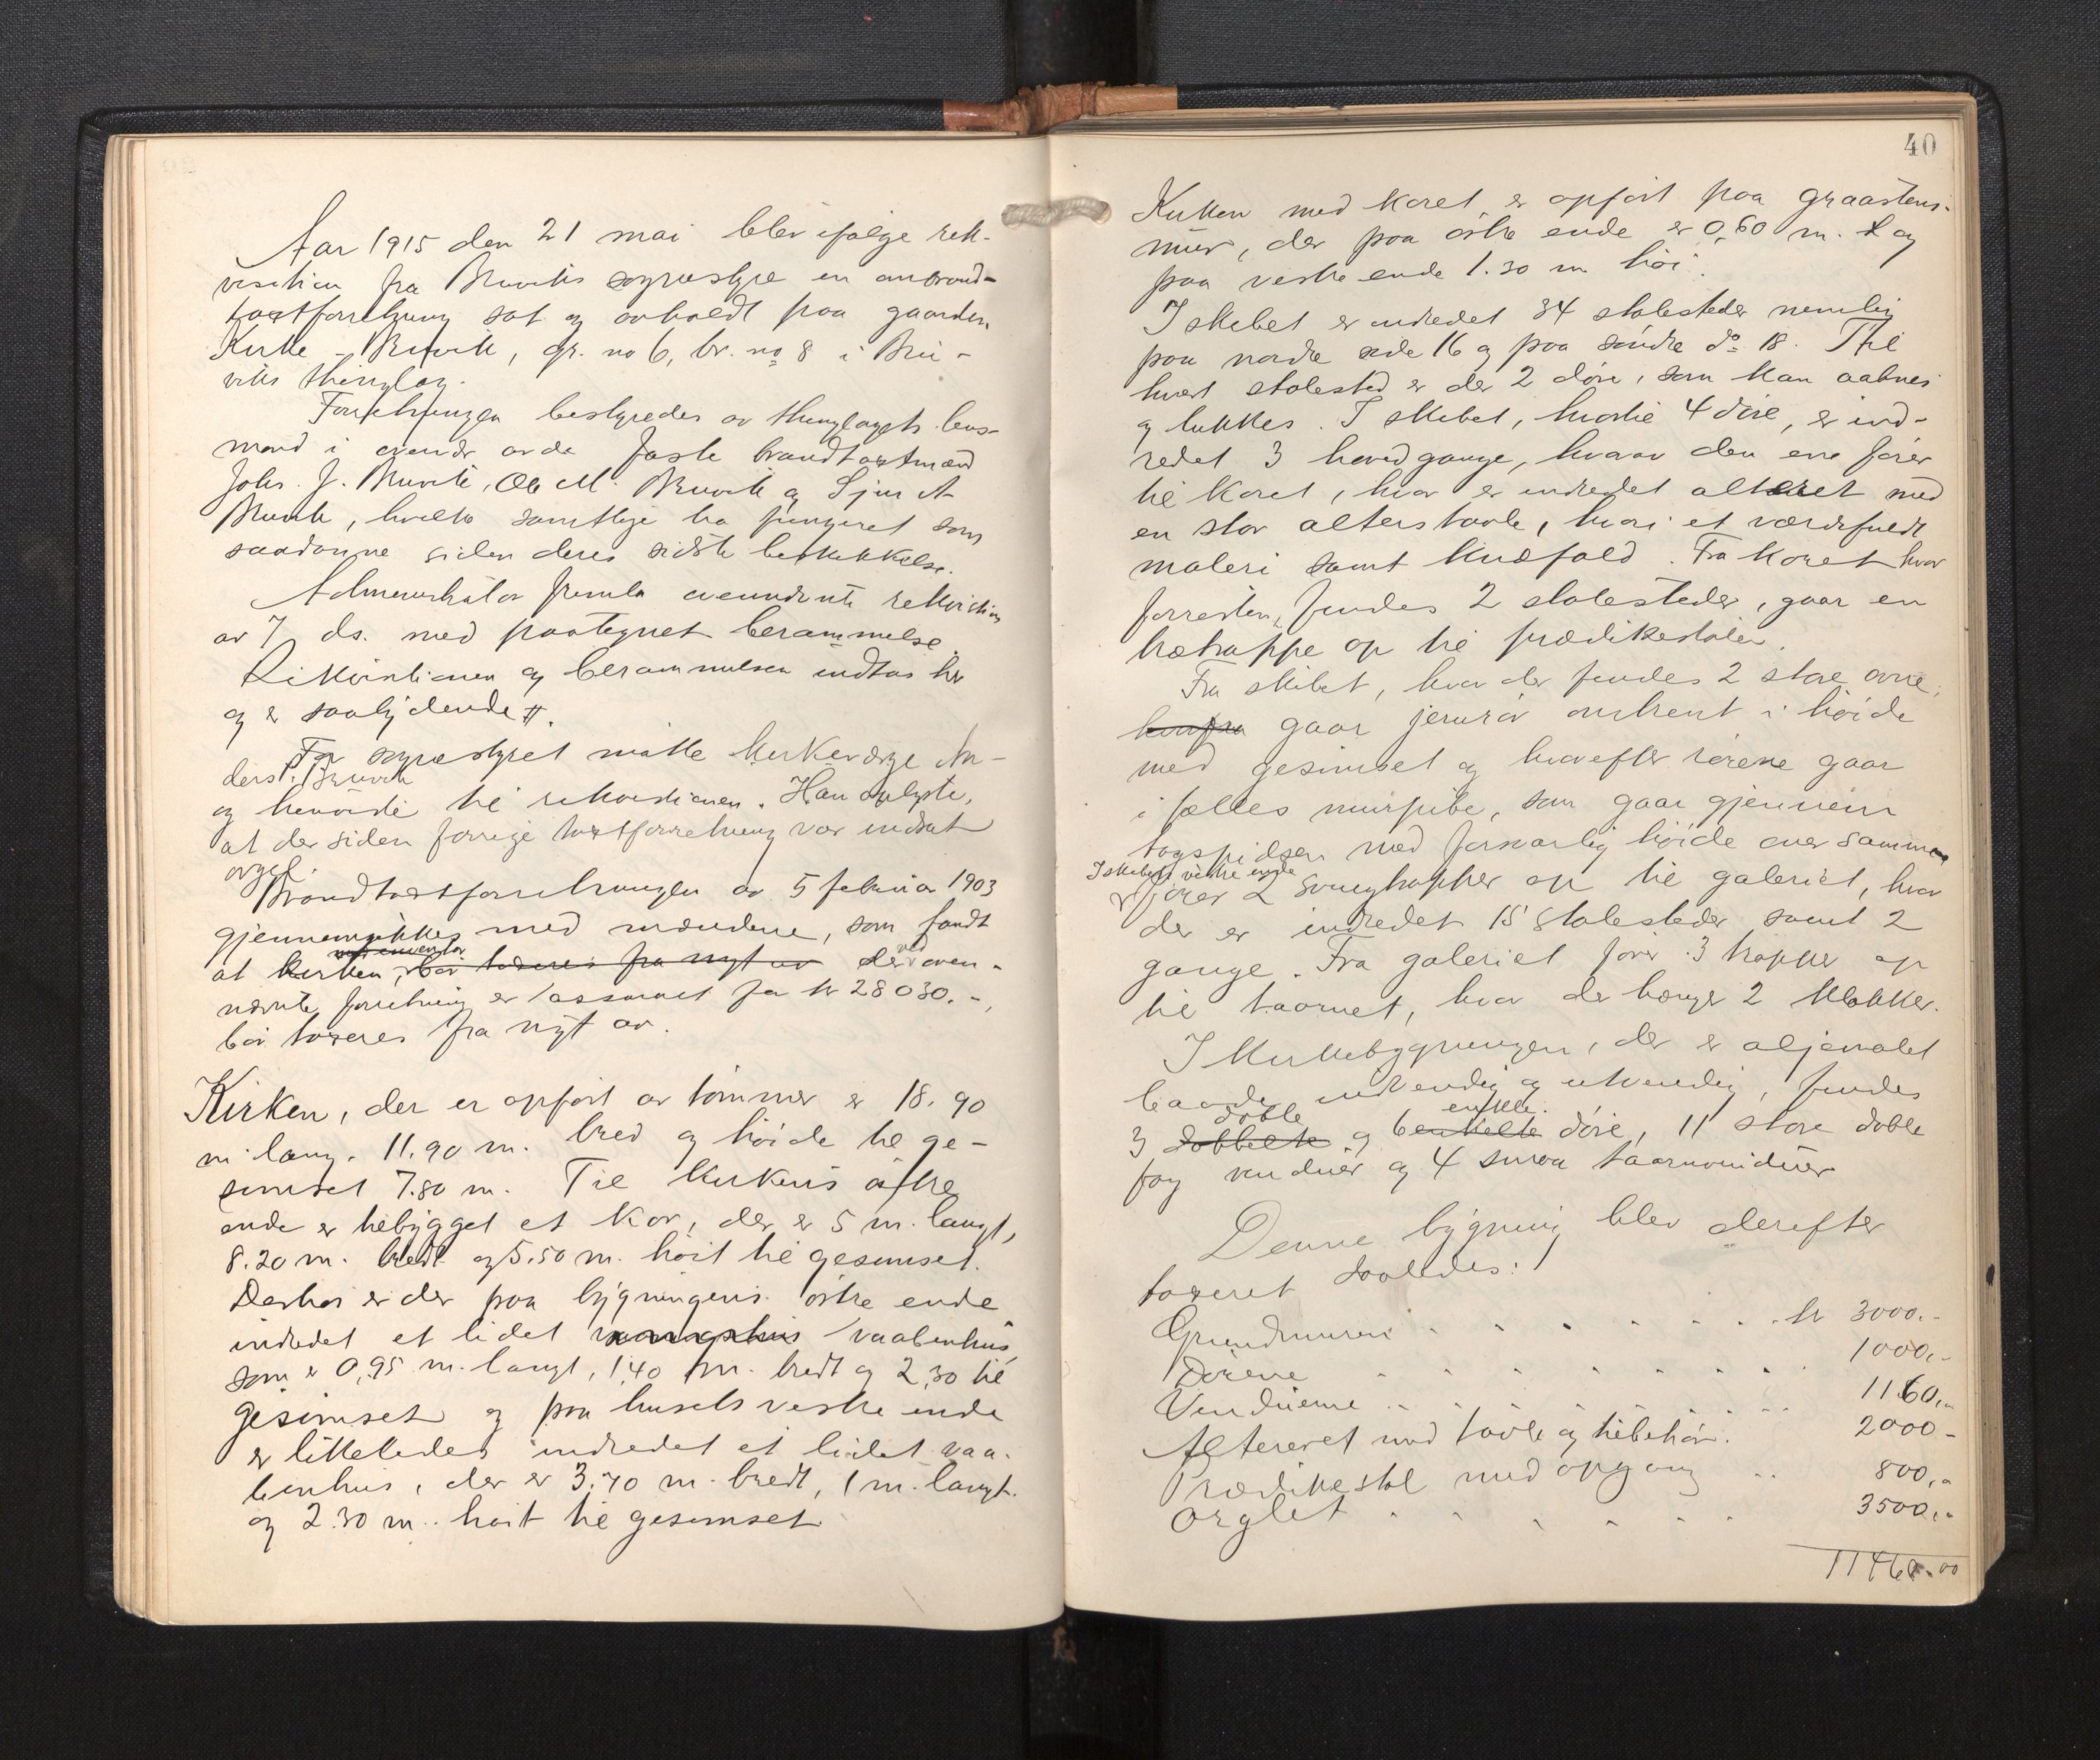 Aar 1915 den 21 mai blev ifølge rek-
visition fra Bruviks sognestyre en ombrand-
taxtforretning sat og avholdt paa gaarden
Kirke-Bruvik, gr. no 6, br. no 8 i Bru-
viks thinglag.
Forretningen bestyredes av thinglagets lens-
mand i overvær av de faste brandtaxtmænd
Johs. J. Bruvik, Ole M. Bruvik og Sjur A
Bruvik, hvilke samtlige har fungeret som
saadanne siden deres sidste beskikkelse.
Administrator fremla ovennævnte rekvisition
av 7 ds. med paategnet berammelse.
Rekvisitionen og berammelsen indtas her
og er saalydende #.
For sognestyret møtte kirkeverge An-
ders P. Bruvik
og henviste til rekvisitionen. Han oplyste,
at der siden forrige taxtforretning var indsat
orgel.
Brandtaxtforretningen av 5 februar 1903
gjennemgikkes med mændene, som fandt
at kirken, med inventar bør taxeres fra nyt av der ved oven-
nævnte forretning er assureret for kr 28030.-,
bør taxeres fra nyt av.
Kirken, der er opført av tømmer er 18.90
m lang. 11.90 m. bred og høide til ge-
simset 7.80 m. Til kirkens østre
ende er tilbygget et kor, der er 5 m. langt,
8.20 m. bredt og 5.50 m. høit til gesimset.
Derhos er der paa bygningens østre ende
indredet et lidet vaabenhus,
som er 0,95 m. langt, 1,40 m. bredt og 2,30 til
gesimset og paa husets vestre ende
er likeledes indredet et lidet vaa-
benhus, der er 3.70 m. bredt, 1 m. langt.
og 2.30 m. høit til gesimset.
40
Kirken med koret er opført paa graastens-
mur, der paa østre ende er 0,60 m. og
paa vestre ende 1.30 m høi.
I skibet er indredet 34 stolesteder nemlig
paa nordre side 16 og paa søndre do 18. Til
hvert stolested er der 2 døre, som kan aabnes
og lukkes. I skibet, hvortil 4 døre, er ind-
redet 3 hovedgange, hvorav den ene fører
til koret, hvor er indredet alteret med
en stor alterstavle, hvori et værdifuldt
maleri samt knæfald. Fra koret hvor
forresten findes 2 stolesteder, gaar en
trætrappe op til prædikestolen.
Fra skibet, hvor der findes 2 store ovne,
herfra gaar jernrør omtrent i høide
med gesimset og hvorefter rørene gaar
i fælles murpibe, som gaar gjennem
tagspidsen med forsvarlig høide over samme
I skibets vestre ende
fører 2 svingtrapper op til galeriet, hvor
der er indredet 15 stolesteder samt 2
gange. Fra galeriet fører 3 trapper op
til taarnet, hvor der hænger 2 klokker.
I kirkebygningen, der er oljemalet
baade indvendig og utvendig, findes
3 dobbelte doble og 6 enkelte enkle døre, 11 store doble
fag vinduer og 4 smaa taarnvinduer
Denne bygning blev derefter
taxeret saaledes:
Grundmuren . . . . . . . kr 3000.-
Dørene . . . . . . . . 1000,-
Vinduerne . . . . . . . 1160,-
Alteret med tavle og tilbehør. 2000 -
Prædikestol med opgang .. 800,-
Orglet . . . . . . 3500,-
11460.00